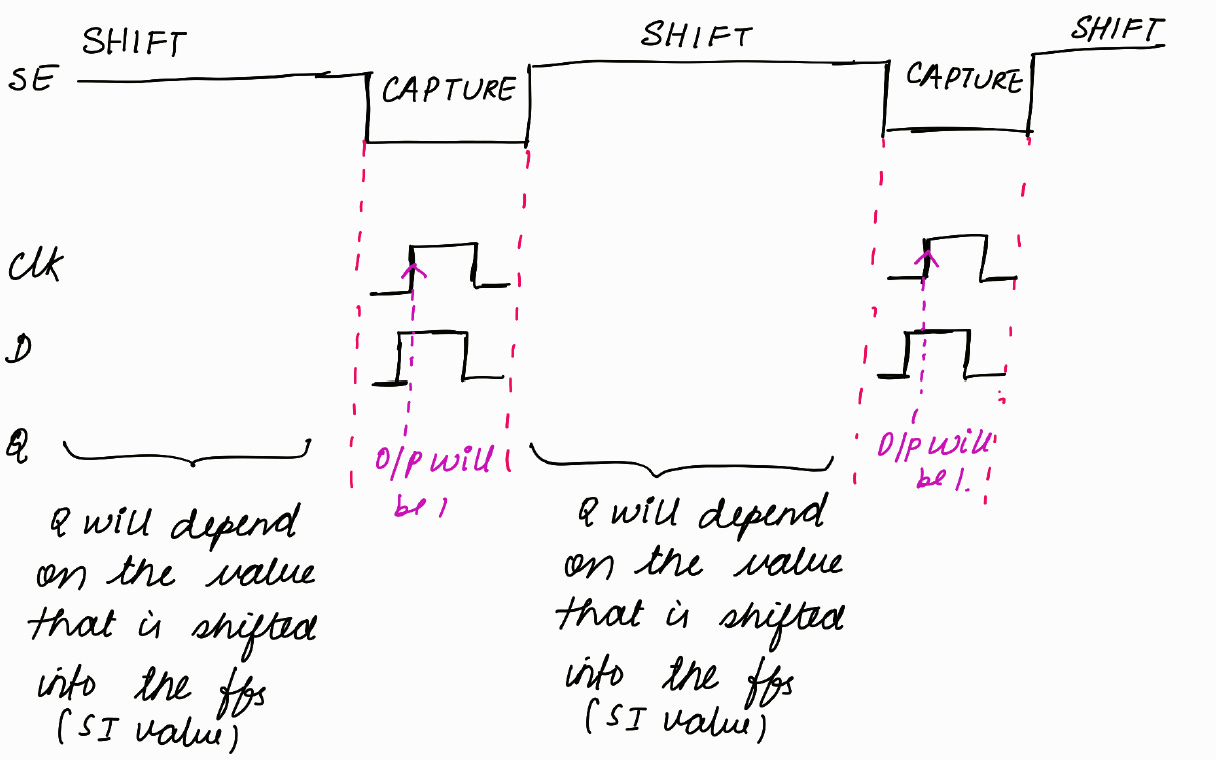 SHIFT SHIFT SHIFT
SE CAPTURE CAPTURE
Clk
D
Q
O/P will O/P will
be 1 be 1.
Q will depend
on the value
that is shifted
into the ffs
(SI value)
Q will depend
on the value
that is shifted
into the ffs
(SI value)